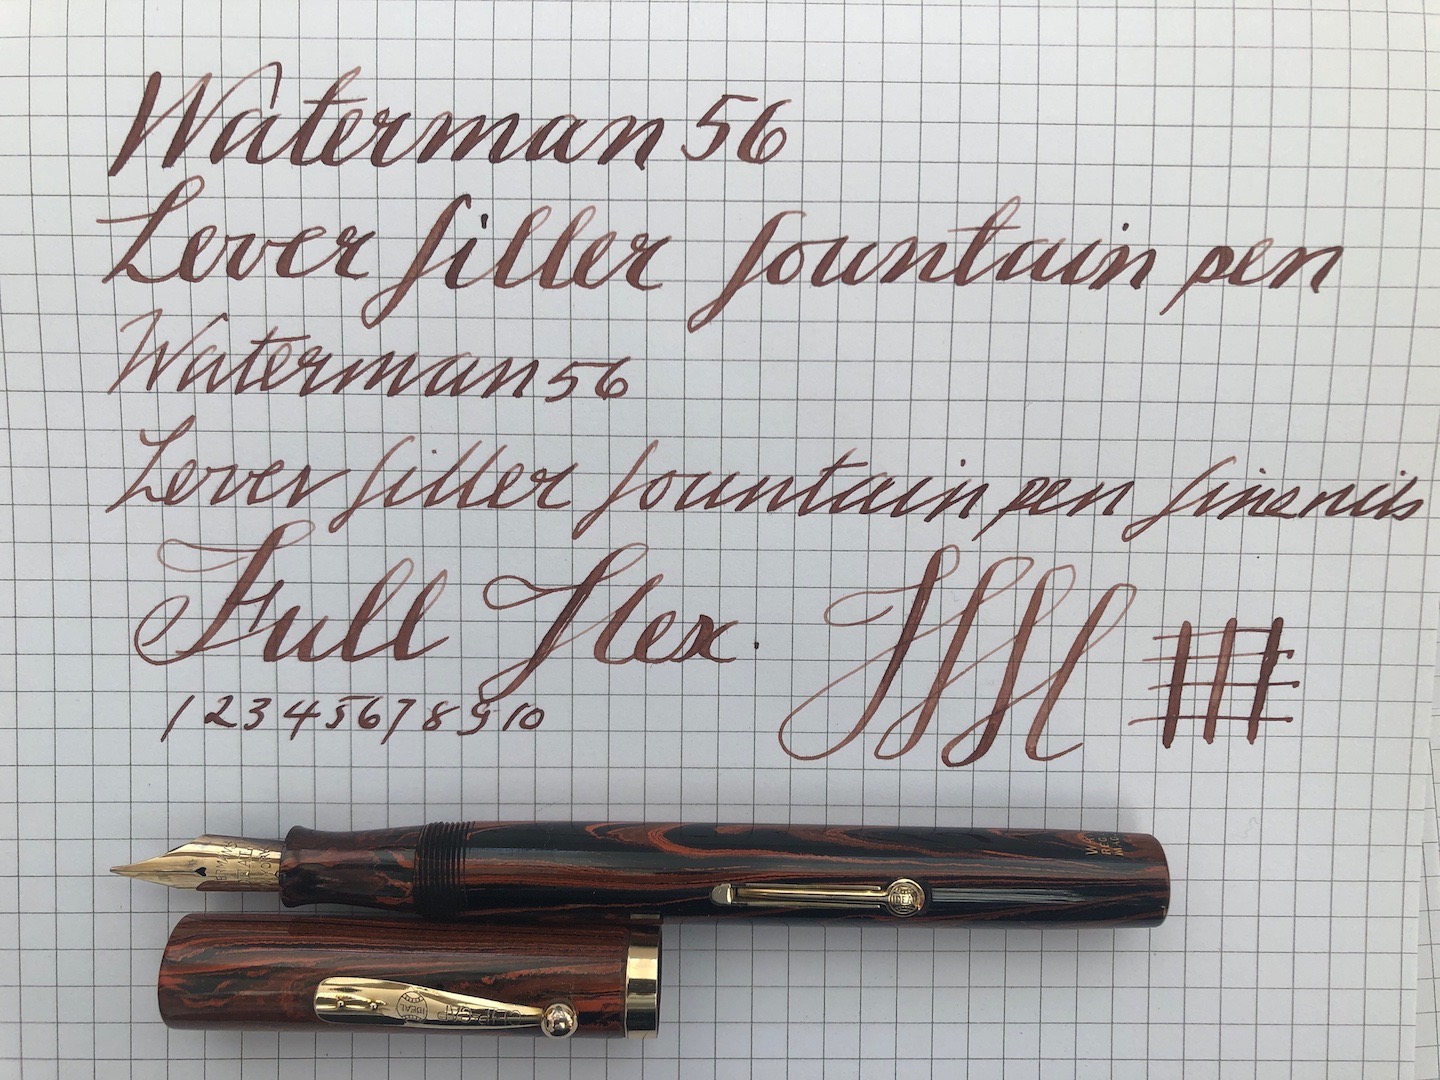 Waterman 56
Lever filler fountain pen
Waterman 56
Lever filler fountain pen fine nib
Full Flex.
1 2 3 4 5 6 7 8 9 10
IDEAL
IDEAL CLIP-CAP